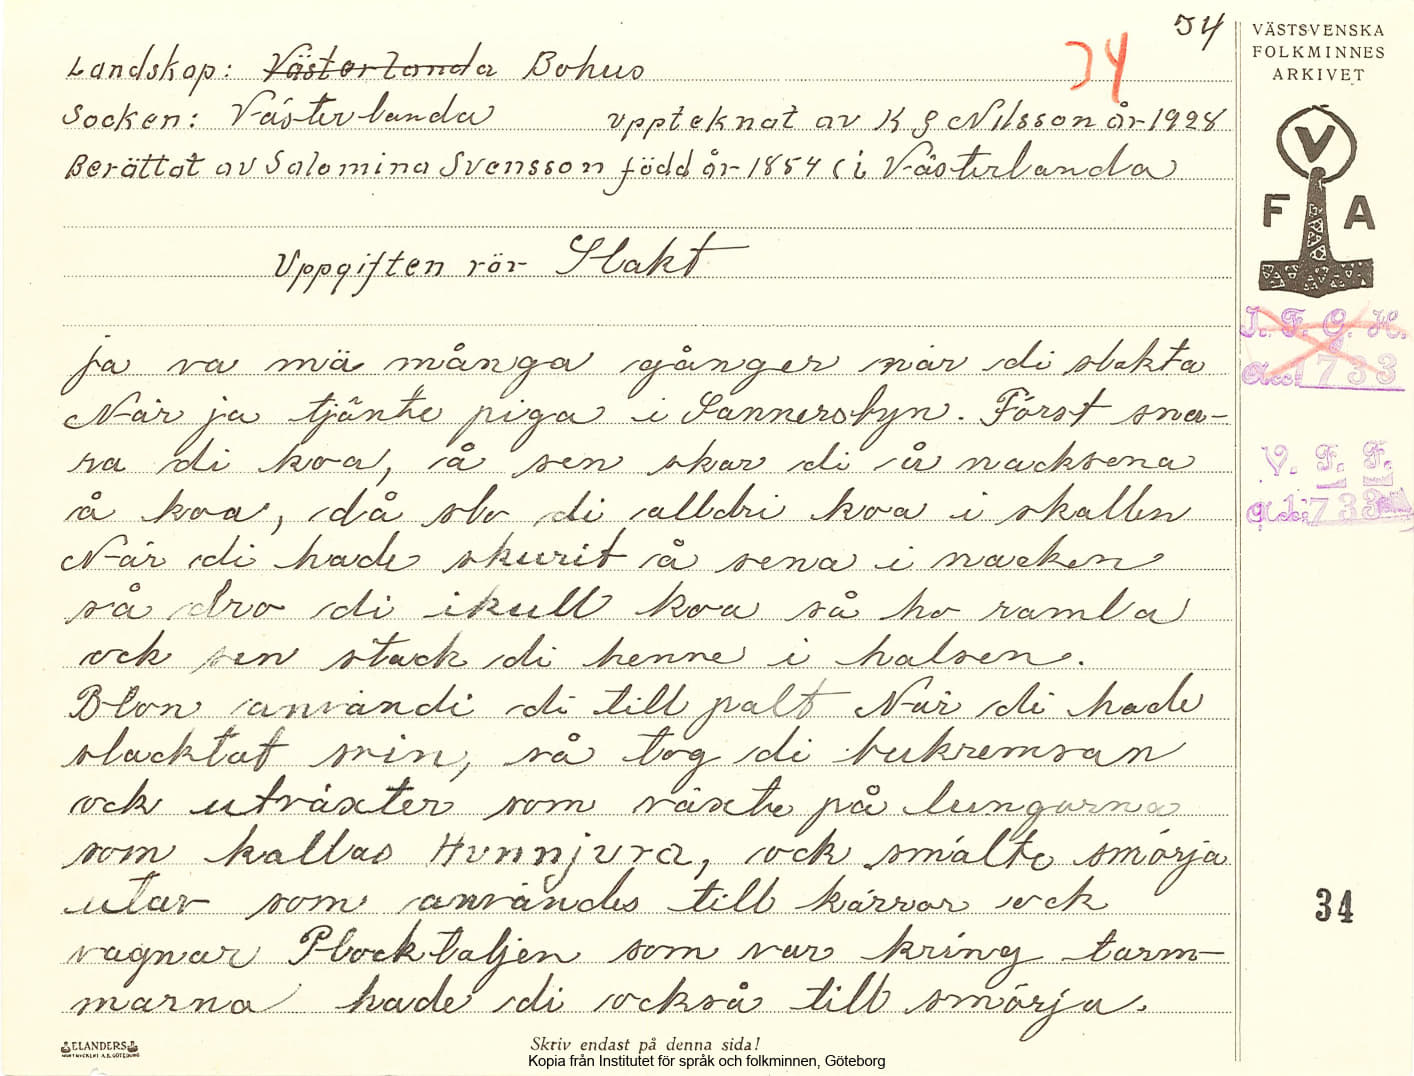 34
34
VÄSTSVENSKA
FOLKMINNES
ARKIVET
Landskap: Västerlanda Bohus
Socken: Västerlanda uppteknat av K G Nilsson år 1928
Berättat av Salomina Svensson född år 1854 i Västerlanda
V
F A
Uppgiften rör Slakt
I. F. G. H.
Acc. 1733
ja va mä många gånger när di slakta
När ja tjänte piga i Sannersbyn. Först sna-
ra di koa, å sen skar di å nacksena
å koa, då slo di alldri koa i skallen
V. F. F.
733
När di hade skurit å sena i nacken
så dro di ikull koa så ho ramla
ock sen stack di henne i halsen.
Blon användi di till palt När di hade
slacktat svin, så tog di bukremsan
ock utväxter som växte på lungarna
som kallas Hunnjura, ock smälte smörja
utav som användes till kärror ock
34
vagnar Plocktaljen som var kring tarm-
marna hade di också till smörja.
ELANDERS
Skriv endast på denna sida!
Kopia från Institutet för språk och folkminnen, Göteborg